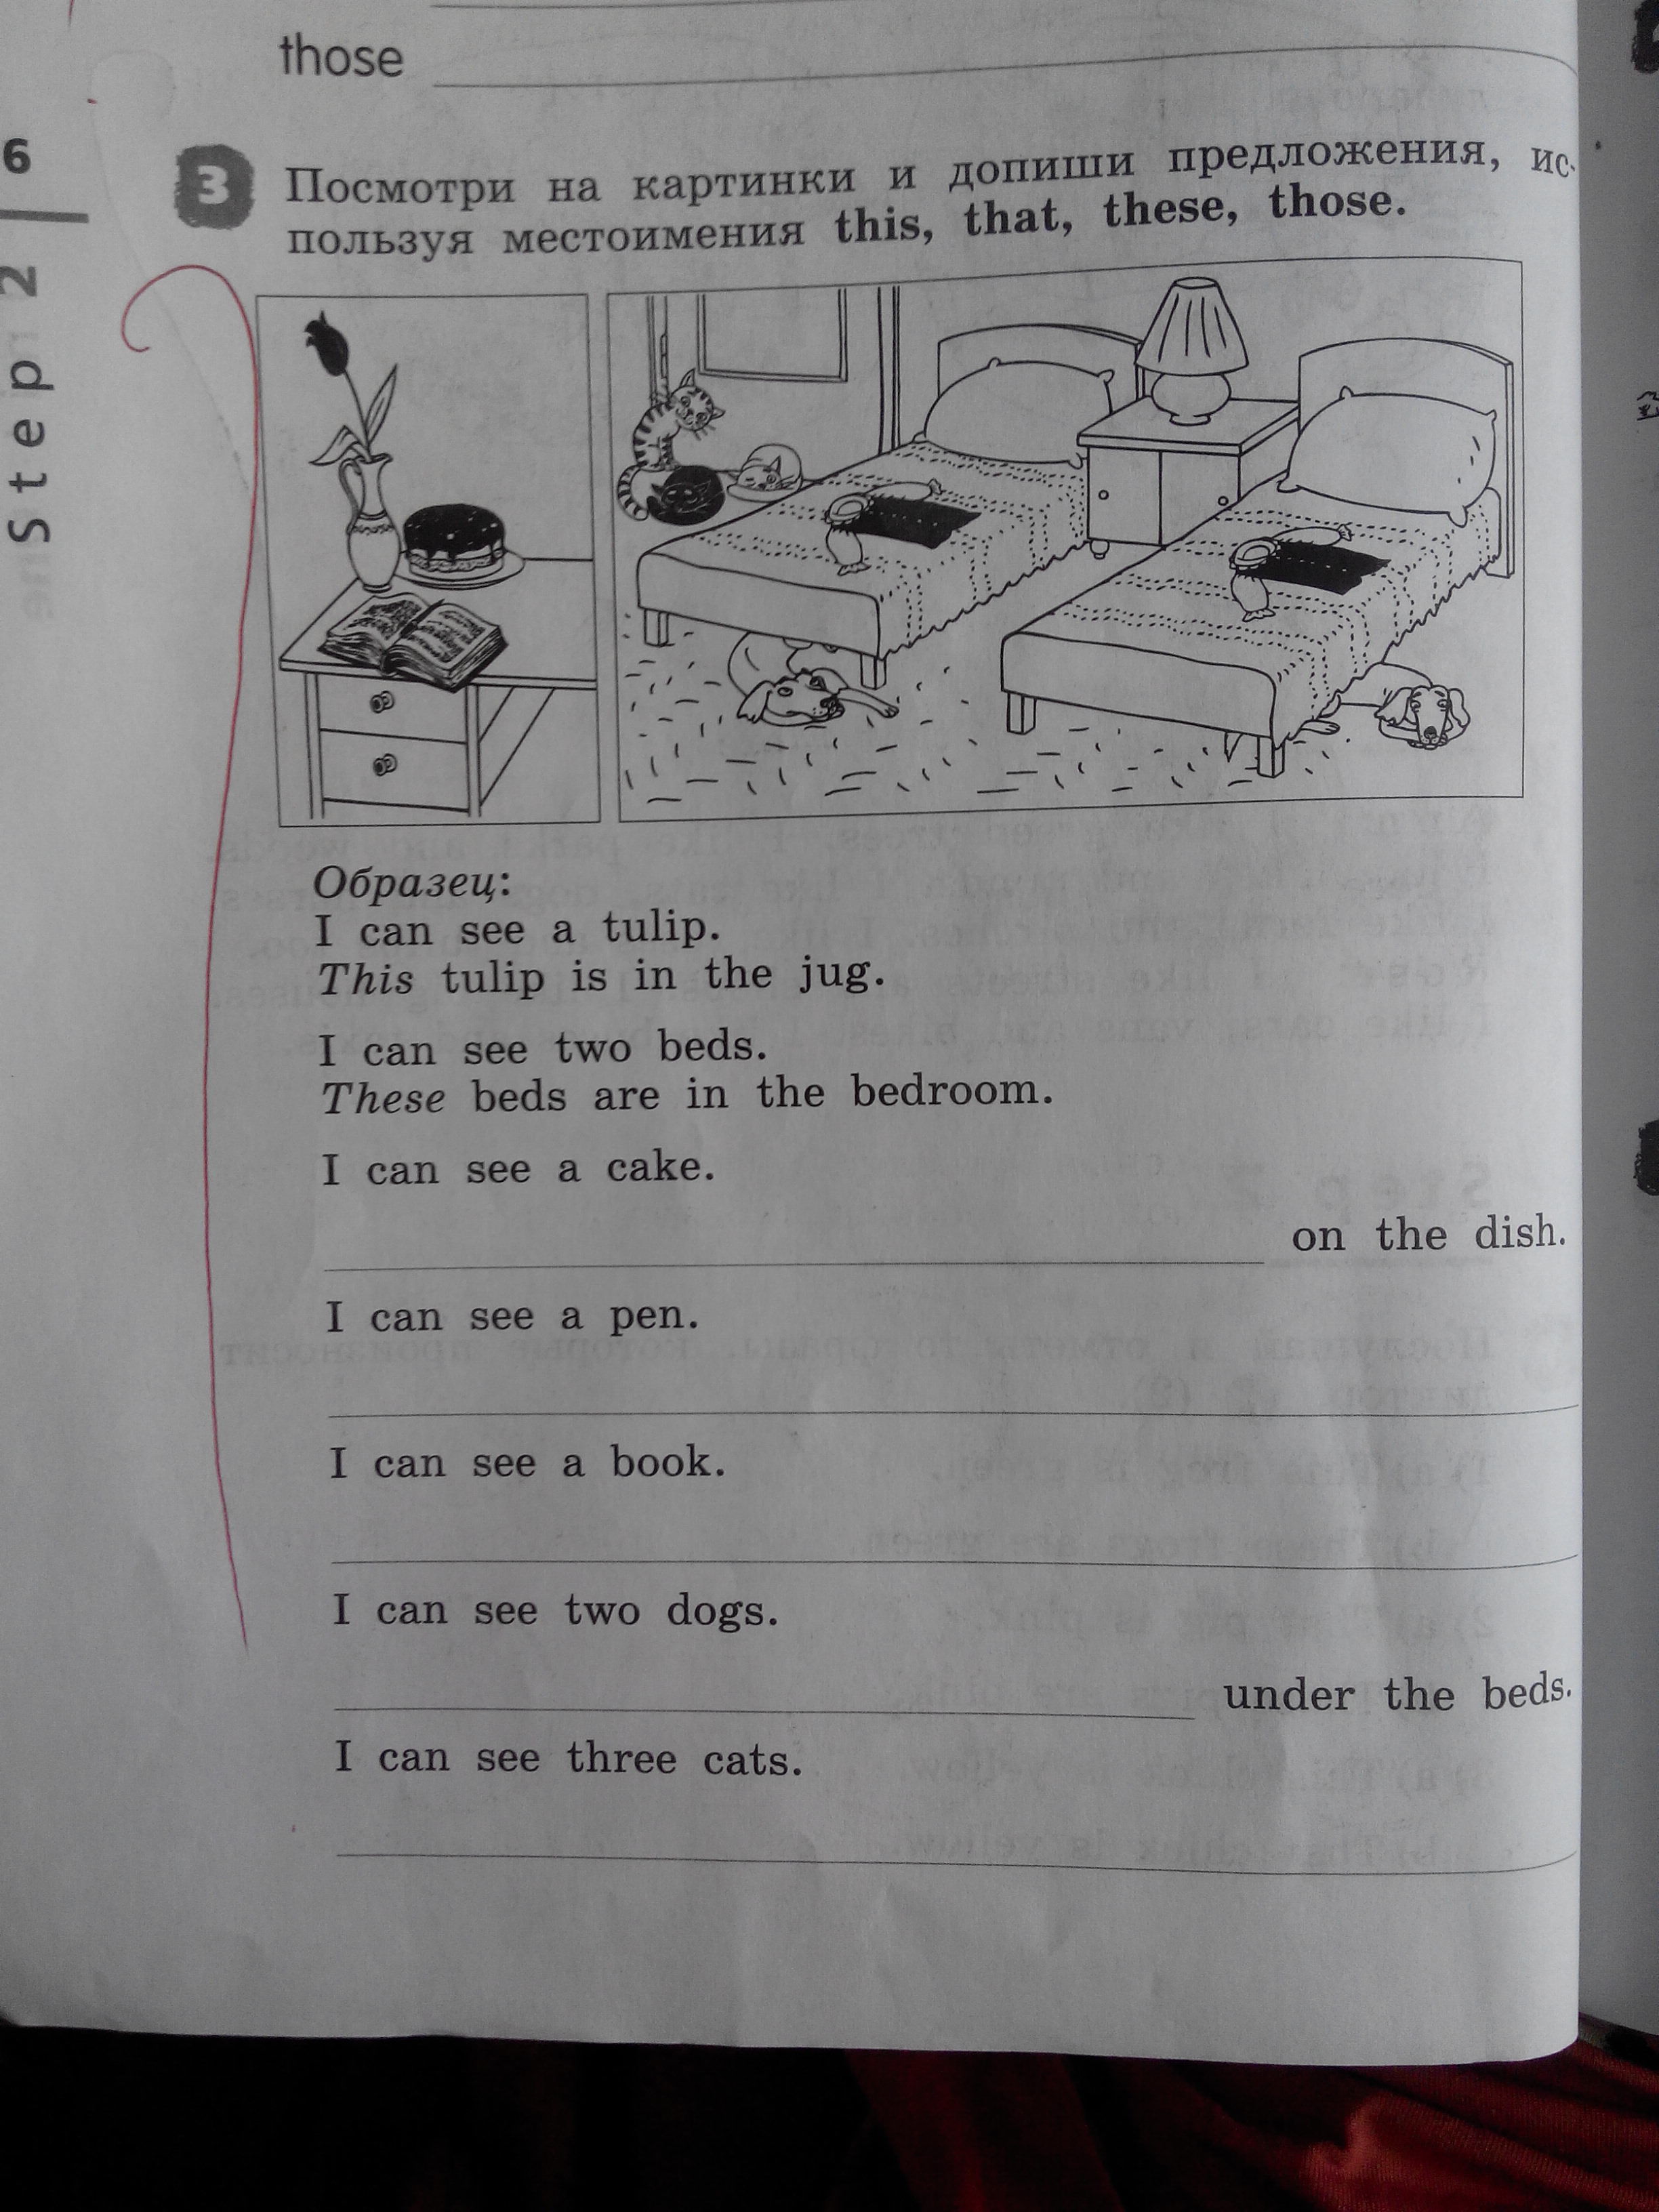 those
6
Step 2
3 Посмотри на картинки и допиши предложения, ис-
пользуя местоимения this, that, these, those.
Образец:
I can see a tulip.
This tulip is in the jug.
I can see two beds.
These beds are in the bedroom.
I can see a cake.
on the dish.
I can see a pen.
I can see a book.
I can see two dogs.
under the beds.
I can see three cats.